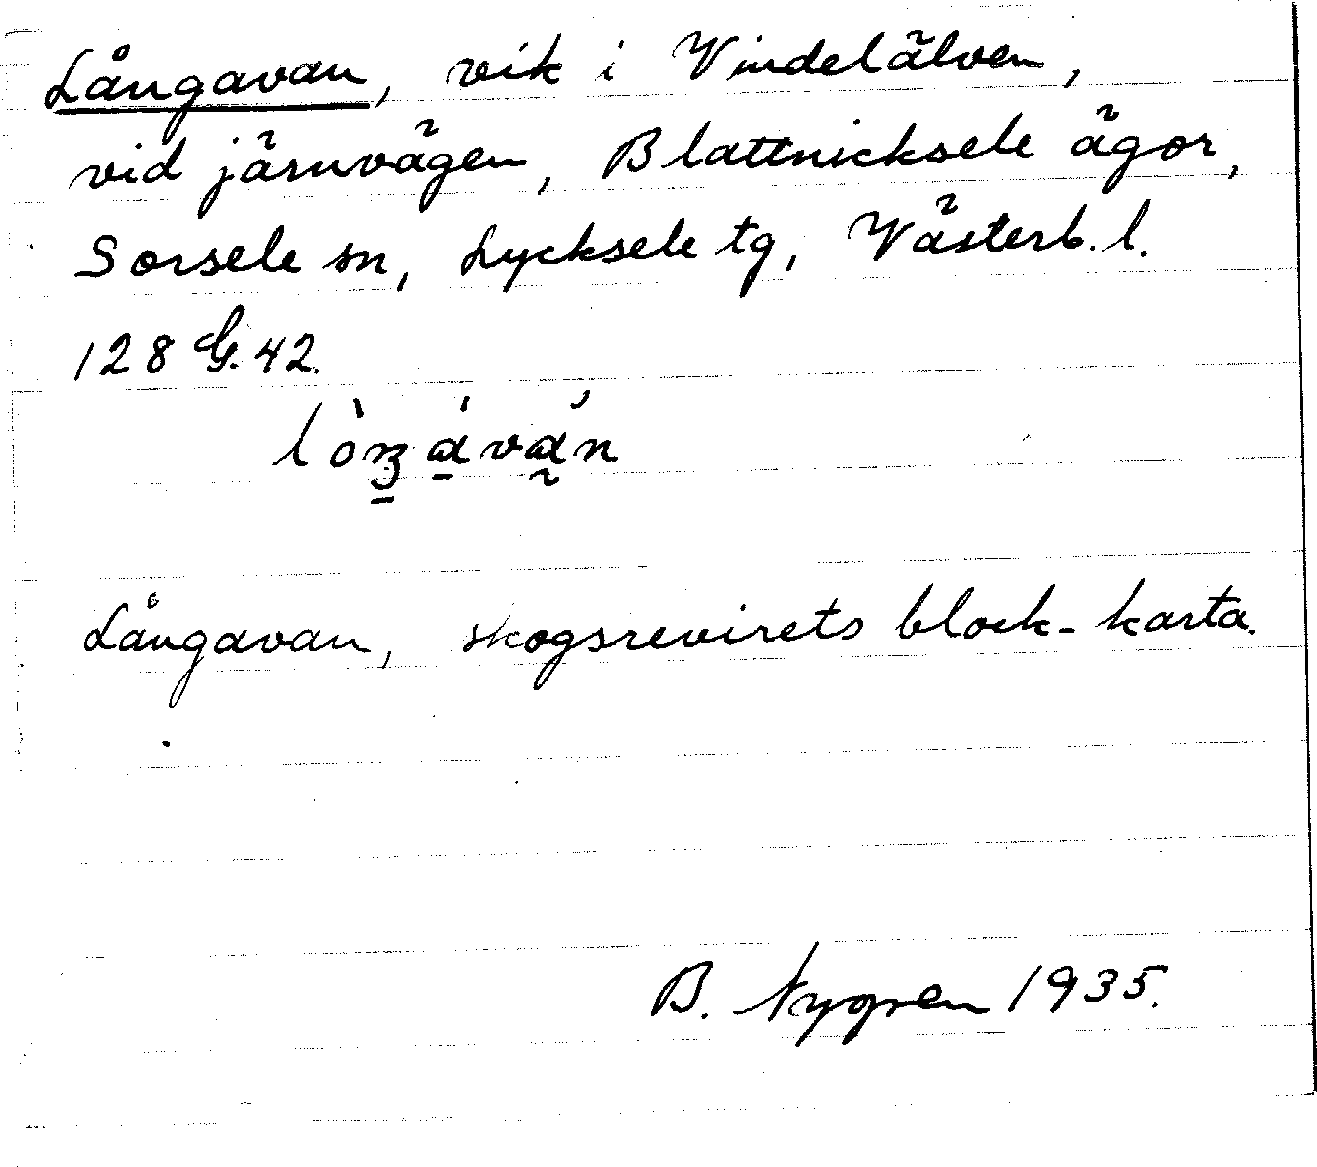 Långavan, vik i Vindelälven,
vid järnvägen, Blattnicksele ägor,
Sorsele sn, Lycksele tg, Västerb. l.
128 G. 42.
Långavan, skogsrevirets block-karta.
B. Nygren 1935.